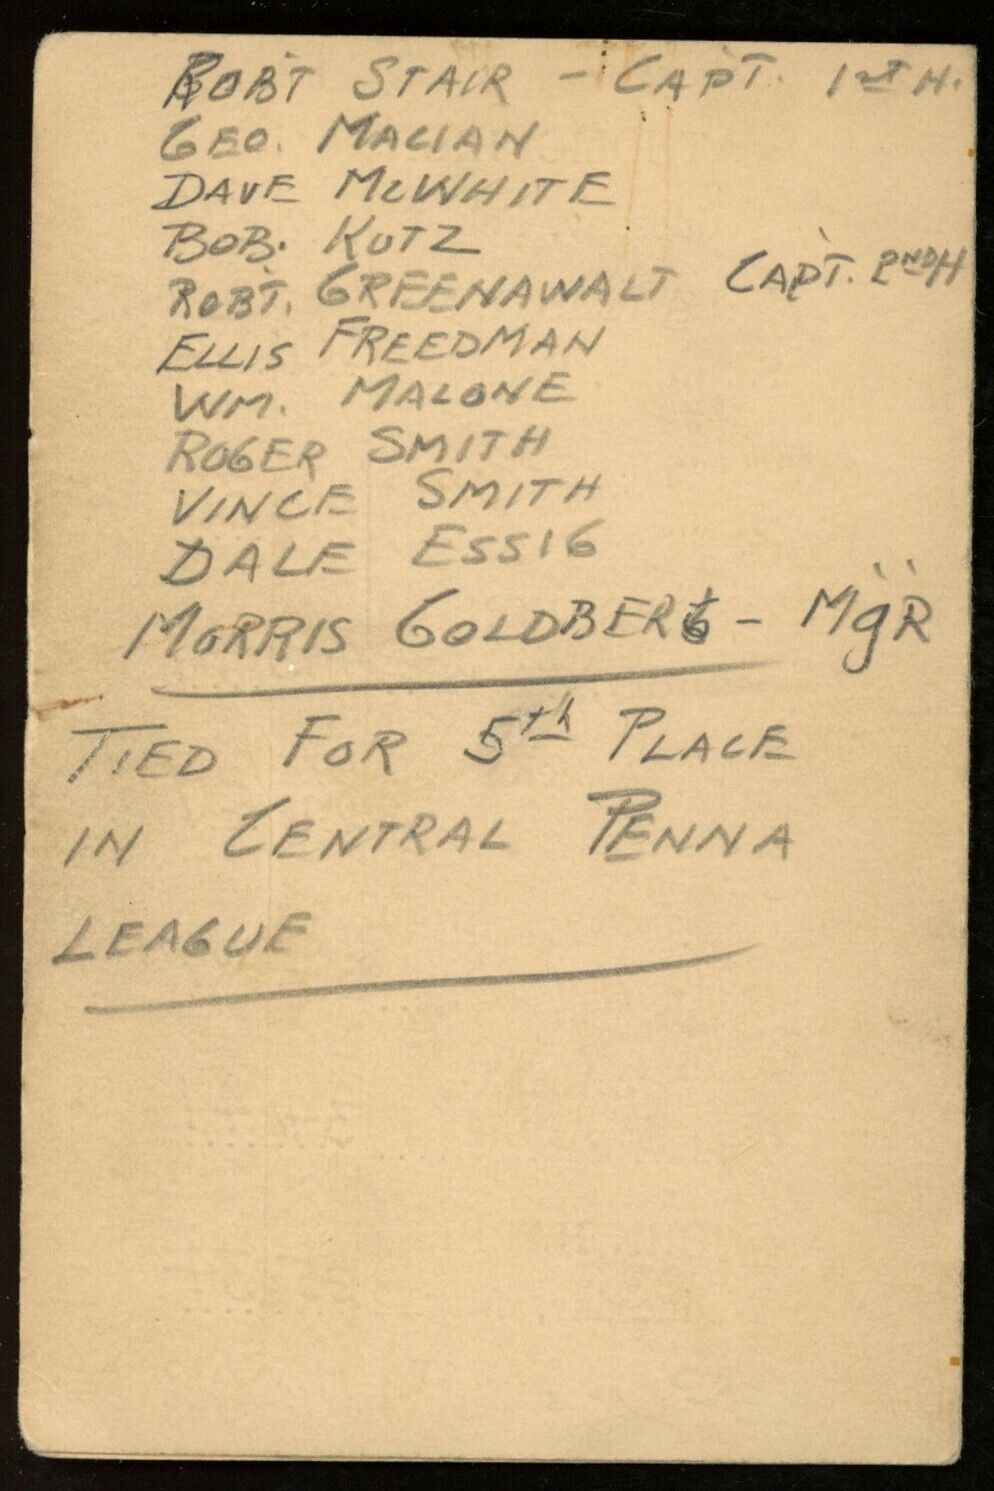 ROB'T STAIR - CAPT. 1ST H.
GEO. MACIAN
DAVE McWHITE
BOB. KUTZ
ROBT. GREENAWALT CAPT. 2ND H
ELLIS FREEDMAN
WM. MALONE
ROGER SMITH
VINCE SMITH
DALE ESSIG
MORRIS GOLDBERG - MgR
TIED FOR 5th PLACE
IN CENTRAL PENNA
LEAGUE